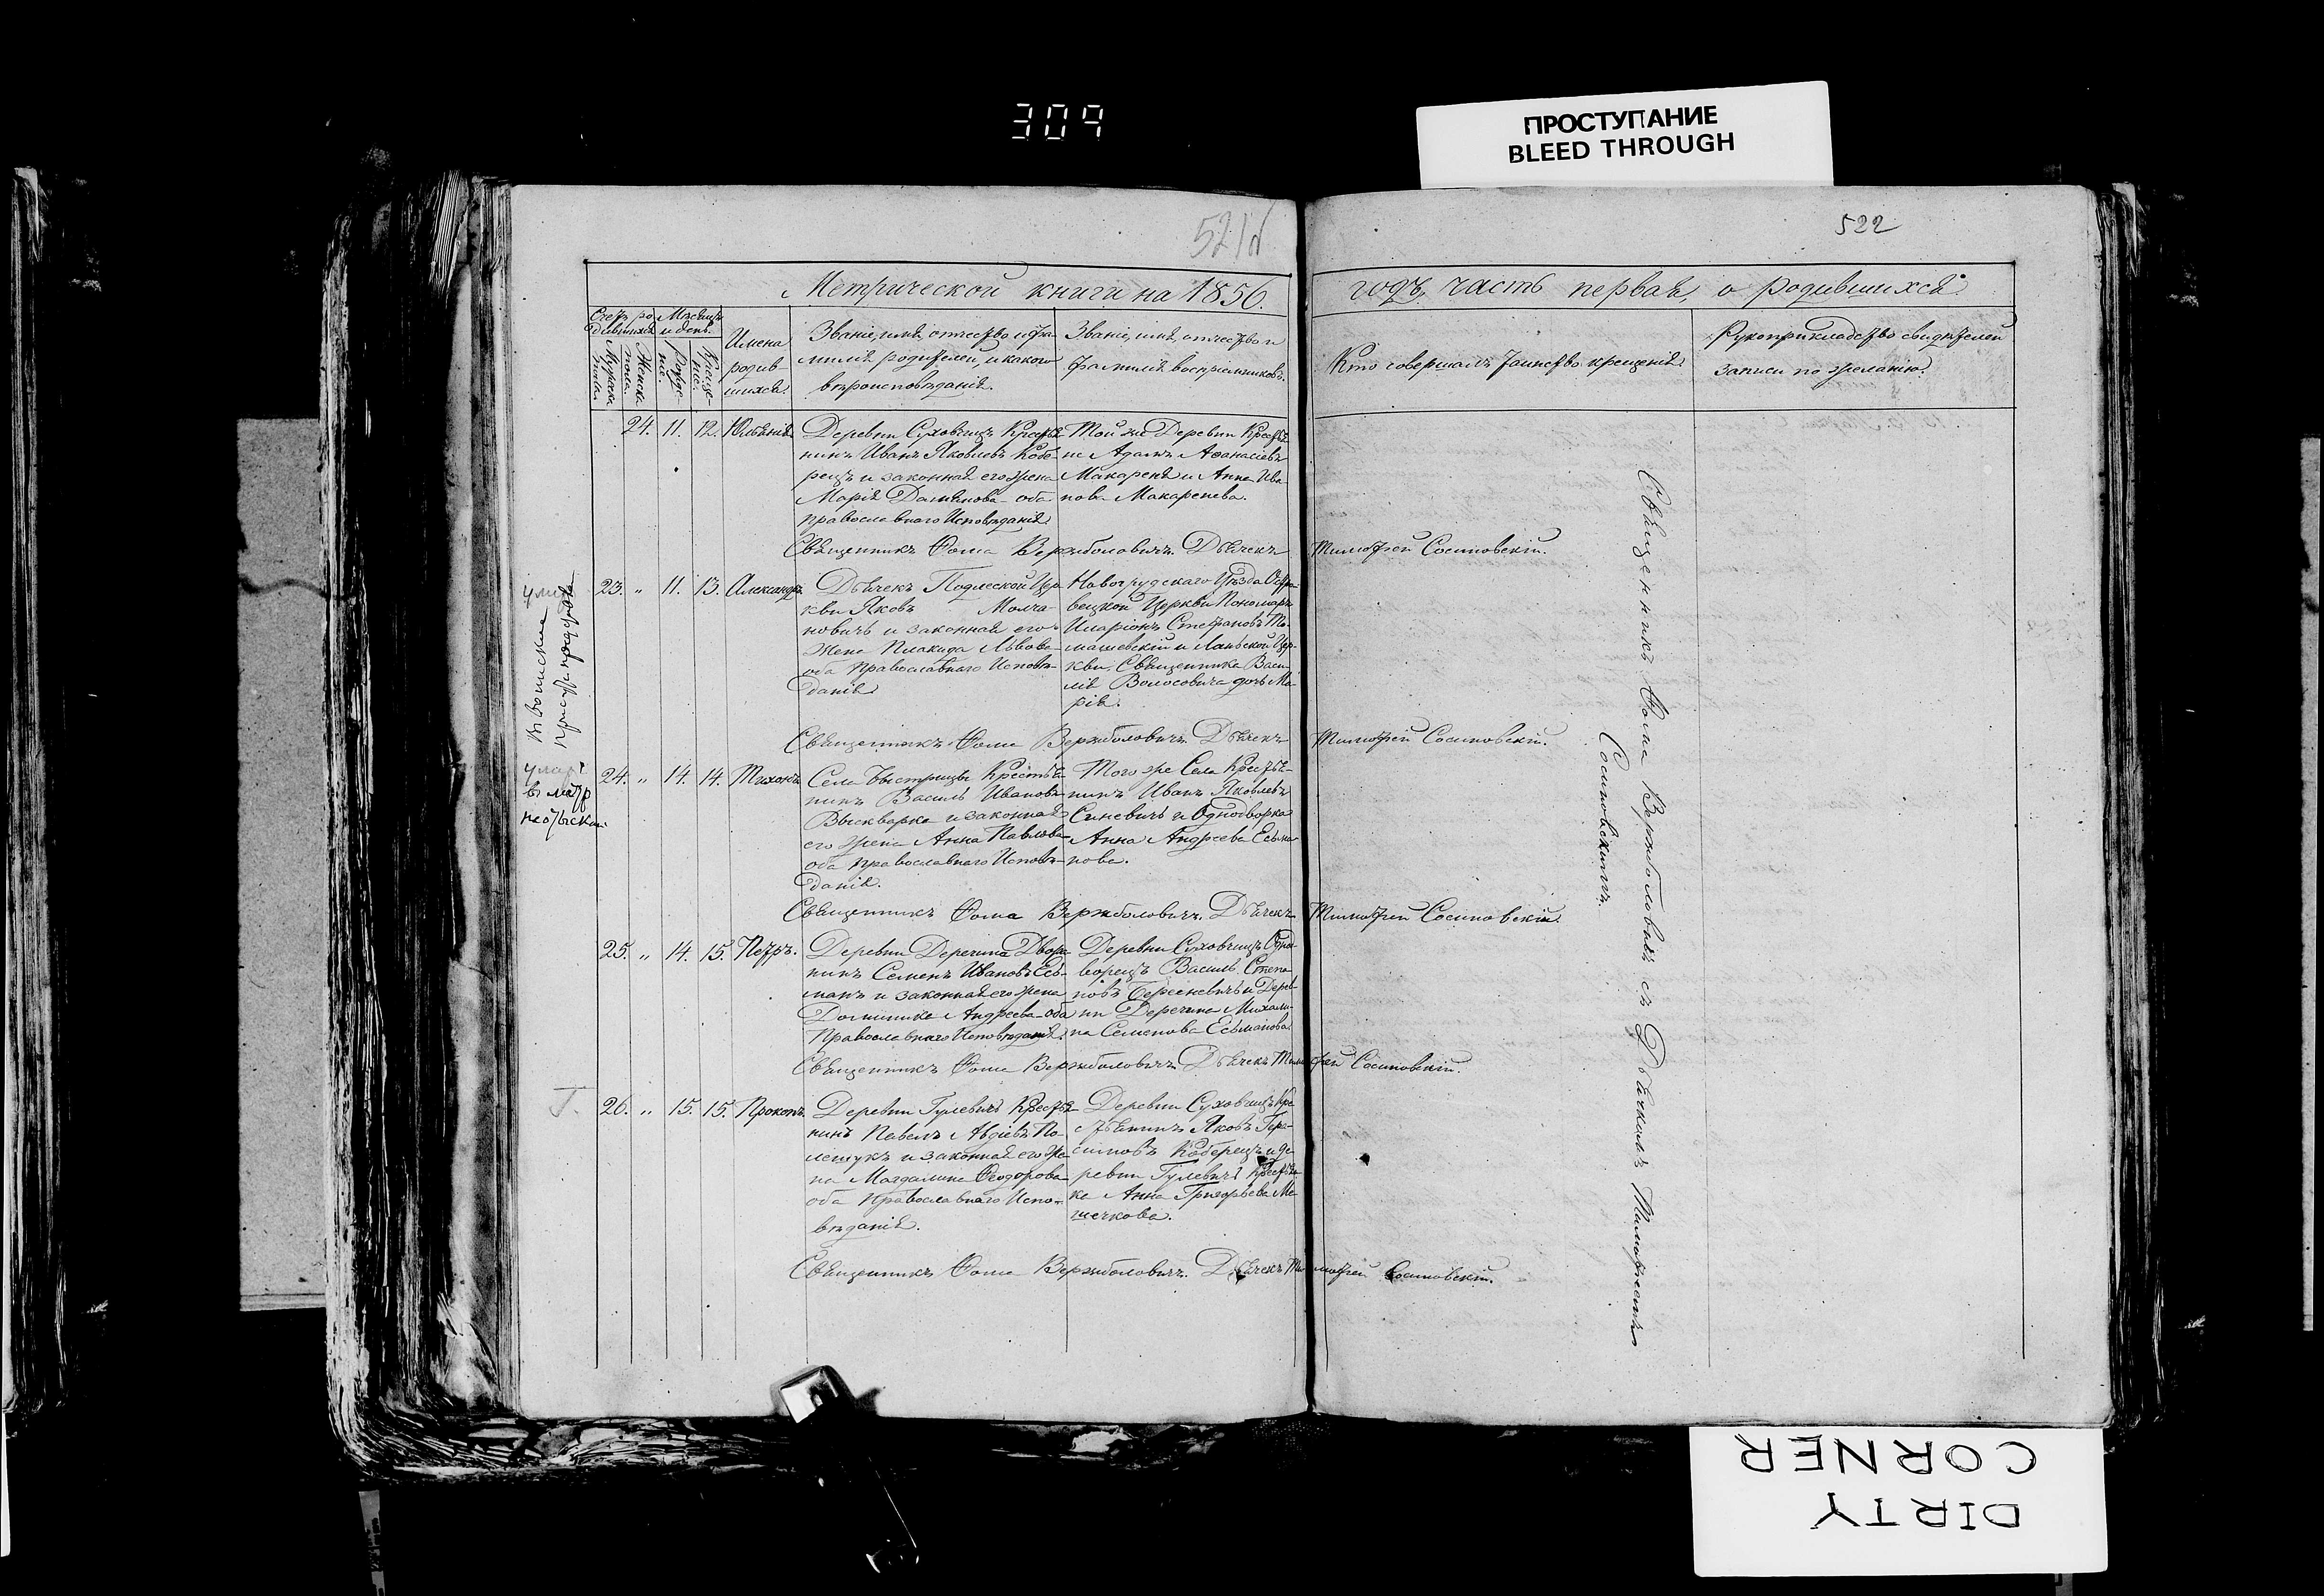 309
ПРОСТУПАНИЕ
BLEED THROUGH
522
Метрической книги на 1856.
годъ, часть первая, о родившихся.
Счетъ ро-
дившихся
Мѣсяцъ
и день.
Мужска
пола.
Женска
пола.
Рожде-
нiе.
Креще-
нiе.
Имена
родив-
шихся.
Званiе, имя, отчество и фа-
милiя родителей, и какого
вѣроисповѣданiя.
Званiе, имя, отчество и
фамилiя воспрiемниковъ.
Кто совершалъ Таинство крещенiя.
Рукоприкладство свидѣтелей
записи по желанiю.
24. 11. 12. Юлiянiя
Деревни Суховчицъ Крестья-
нинъ Иванъ Яковлевъ Кобе-
рецъ и законная его жена
Марiя Дамянова оба
православнаго Исповѣданiя
Той же Деревни Крестья-
не Адамъ Афанасiевъ
Макареня и Анна Ива-
нова Макаренева.
Священникъ Фома Вержболовичъ. Дьячекъ Тимофей Сосиновскiй.
23. „ 11. 13. Александръ
Дьячекъ Подлеской Цер-
кви Яковъ Молча-
новичъ и законная его
Жена Плакида Львова
оба православнаго Исповѣ-
данiя
Новогрудскаго Уѣзда
Церкви Пономарь
Иларiонъ Стефановъ То-
машевскiй и Ланьской Цер-
кви Священника Васи-
лiя Волосовича дочь Ма-
рiя.
Священникъ Фома Вержболовичъ. Дьячекъ Тимофей Сосиновскiй.
24. „ 14. 14. Тихонъ
Села Быстрицы Крестья-
нинъ Василь Ивановъ
Выскварка и законная
его жена Анна Павлова
оба православнаго Исповѣ-
данiя.
Того же Села Крестья-
нинъ Иванъ Яковлевъ
Синевичъ и Однодворка
Анна Андреева Есьма-
нова.
Священникъ Фома Вержболовичъ. Дьячекъ Тимофей Сосиновскiй.
25. „ 14. 15. Петръ.
Деревни Деречина Дворя-
нинъ Семенъ Ивановъ Есь-
манъ и законная его жена
Доминика Андреева оба
Православнаго Исповѣданiя.
Деревни Суховчицъ Одно-
ворецъ Василь Степа-
новъ Береневичъ и Дерев-
ни Деречина Михали-
на Семенова Есьманова
Священникъ Фома Вержболовичъ Дьячекъ Тимофей Сосиновскiй.
26. „ 15. 15. Прокопъ.
Деревни Гулевичъ Крестья-
нинъ Павелъ Авдiевъ По-
лещукъ и законная его же-
на Магдалина Феодорова
оба православнаго Испо-
вѣданiя.
Деревни Суховчицъ Кре-
стьянинъ Яковъ Гера-
симовъ Коберецъ и де-
ревни Гулевичъ Крестьян-
ка Анна Григорьева Ме-
шечкова.
Священникъ Фома Вержболовичъ. Дьячекъ Тимофей Сосиновскiй.
Священникъ Фома Вержболовичъ съ Дьячкомъ Тимофеемъ
Сосиновскимъ.
DIRTY
CORNER